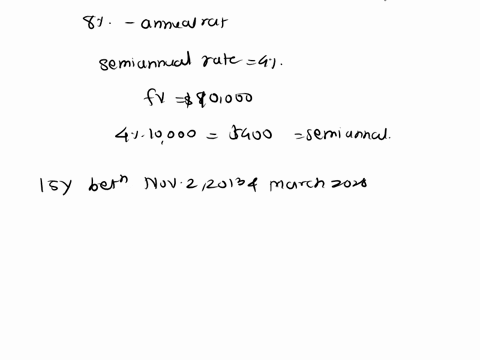 8%. - annual rat
semiannual rate = 4%.
fv = $10,000
4%. 10,000 = $400 = semiannal.
15y betn Nov. 2, 2013 & march 2028